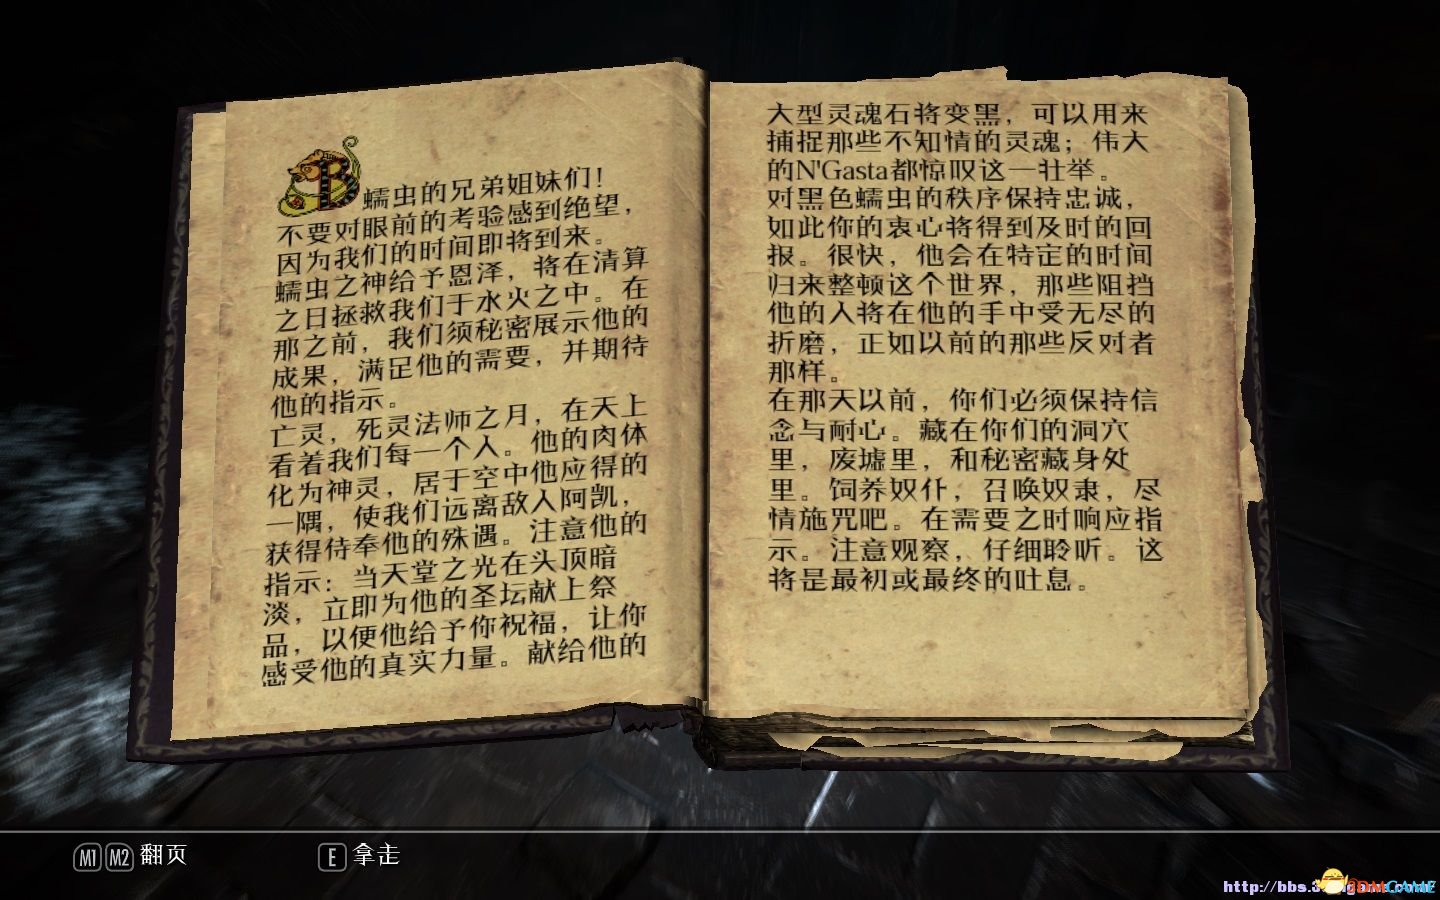 B
蠕虫的兄弟姐妹们！
不要对眼前的考验感到绝望，
因为我们的时间即将到来。
蠕虫之神给予恩泽，将在清算
之日拯救我们于水火之中。在
那之前，我们须秘密展示他的
成果，满足他的需要，并期待
他的指示。
亡灵，死灵法师之月，在天上
看着我们每一个人。他的肉体
化为神灵，居于空中他应得的
一隅，使我们远离敌人阿凯，
获得侍奉他的殊遇。注意他的
指示：当天堂之光在头顶暗
淡，立即为他的圣坛献上祭
品，以便他给予你祝福，让你
感受他的真实力量。献给他的
大型灵魂石将变黑，可以用来
捕捉那些不知情的灵魂；伟大
的N'Gasta都惊叹这一壮举。
对黑色蠕虫的秩序保持忠诚，
如此你的衷心将得到及时的回
报。很快，他会在特定的时间
归来整顿这个世界，那些阻挡
他的人将在他的手中受无尽的
折磨，正如以前的那些反对者
那样。
在那天以前，你们必须保持信
念与耐心。藏在你们的洞穴
里，废墟里，和秘密藏身处
里。饲养奴仆，召唤奴隶，尽
情施咒吧。在需要之时响应指
示。注意观察，仔细聆听。这
将是最初或最终的吐息。
M1 M2 翻页
E 拿走